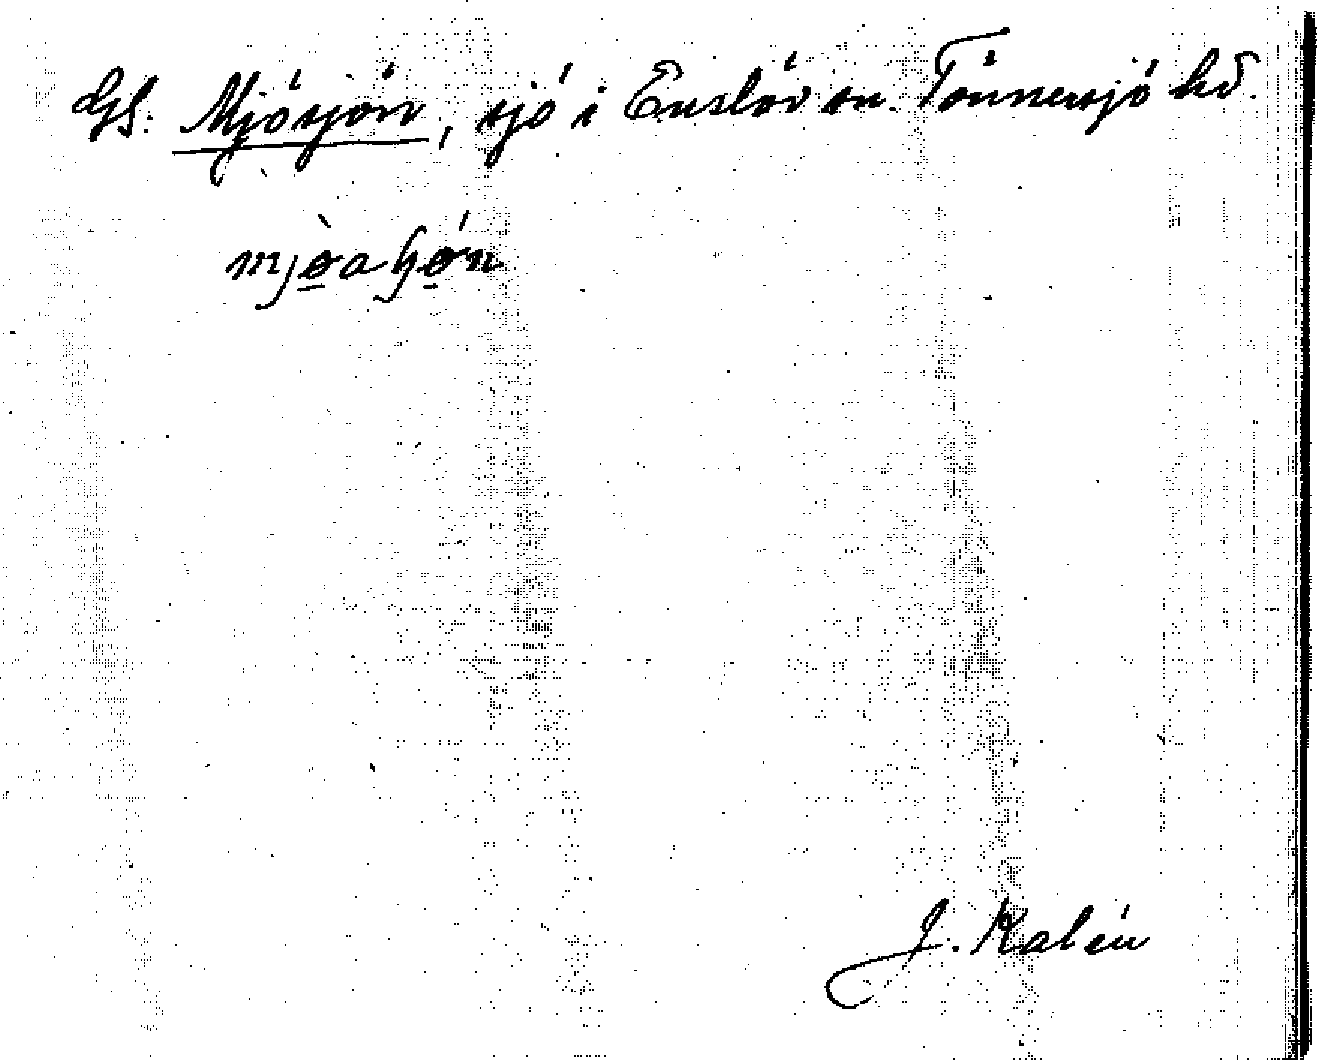 Gs. Mjösjön, sjö i Enslöv sn. Tönnersjö hd.
mjø̀aʃǿn
J. Kalén